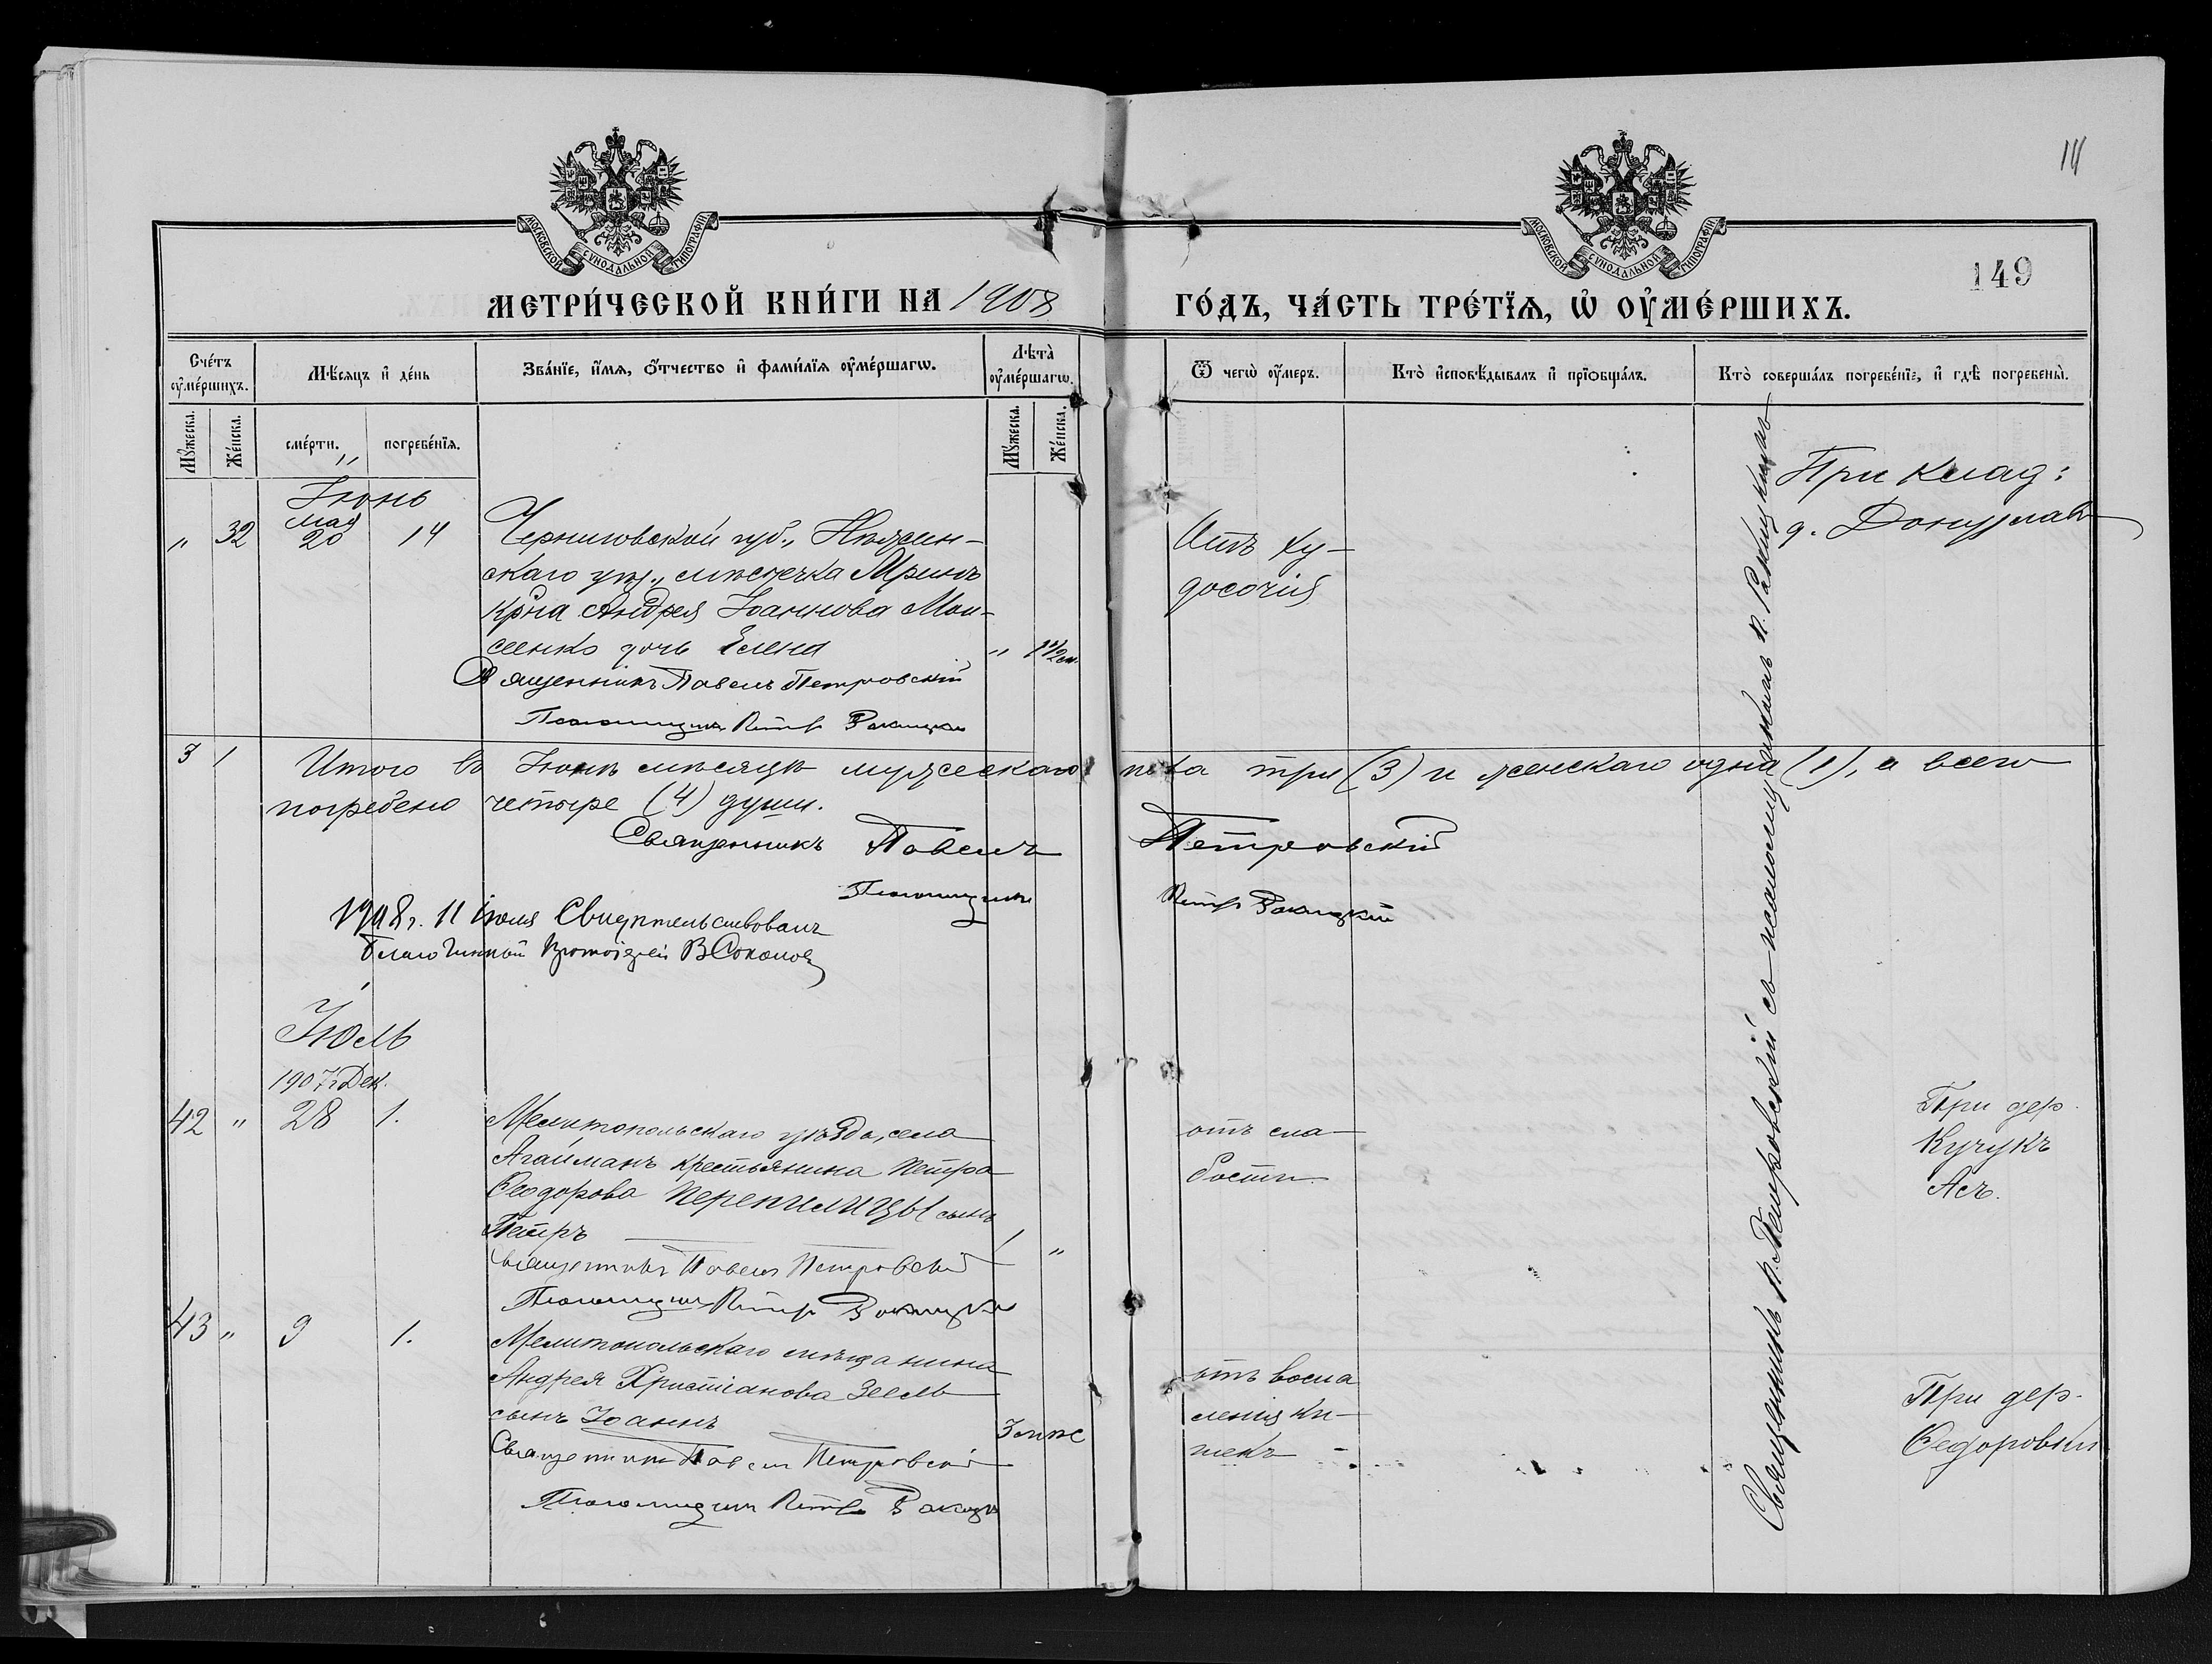 14
149
МОСКОВСКОЙ СѴНОДАЛЬНОЙ ТИПОГРАФІИ
МОСКОВСКОЙ СѴНОДАЛЬНОЙ ТИПОГРАФІИ
МЕТРИ́ЧЕСКОЙ КНИ́ГИ НА 1908 ГО́ДЪ, ЧА́СТЬ ТРЕ́ТЇѦ, Ѡ҆ ОУ҆МЕ́РШИХЪ.
Сче́тъ оу҆ме́ршихъ.
Мѣ́сяцъ и҆ де́нь
Зва́нїе, и҆́мѧ, ѻ҆́тчество и҆ фами́лїѧ оу҆ме́ршагѡ.
Лѣта̀ оу҆ме́ршагѡ.
Ѿ чегѡ̀ оу҆́меръ.
Кто̀ и҆сповѣ́дывалъ и҆ прїѻбща́лъ.
Кто̀ соверша́лъ погребе́нїе, и҆ гдѣ̀ погребены̀.
Мꙋ́жеска. Же́нска. сме́рти. погребе́нїѧ. Мꙋ́жеска. Же́нска.
Іюнь
мая
" 32 20 14 Черниговской губ., Нѣжин-
скаго уѣз., мѣстечка Мринъ
кр̃на Андрея Іоаннова Мои-
сеенко дочь Елена "
Священникъ Павелъ Петровскій
Псаломщикъ Петръ Ракицкій
Отъ ху-
досочія
При клад:
д. Донузлавъ
3 1 Итого въ Іюнѣ мѣсяцѣ мужескаго пола три (3) и женскаго одна (1), а всего
погребено четыре (4) души.
Священникъ Павелъ Петровскій
Псаломщикъ Петръ Ракицкій
1908 г. 11 іюля Свидѣтельствовалъ
Благочинный Протоіерей В Соколов
Іюль
1907 г. Дек.
42 " 28 1. Мелитопольскаго уѣзда, села
Агайманъ крестьянина Петра
Ѳеодорова Перепилицы сынъ
Петръ "
Священникъ Павелъ Петровскій
Псаломщикъ Петръ Ракицкій
отъ сла-
бости
При дер.
Кучукъ
Асъ.
43 " 9 1. Мелитопольскаго мѣщанина
Андрея Христіанова Зеель
сынъ Іоаннъ
Священникъ Павелъ Петровскій
Псаломщикъ Петръ Ракицкій
отъ воспа
ленія ки-
шекъ
При дер.
Ѳедоровки
Священникъ П. Петровскій съ псаломщикомъ П. Ракицкимъ